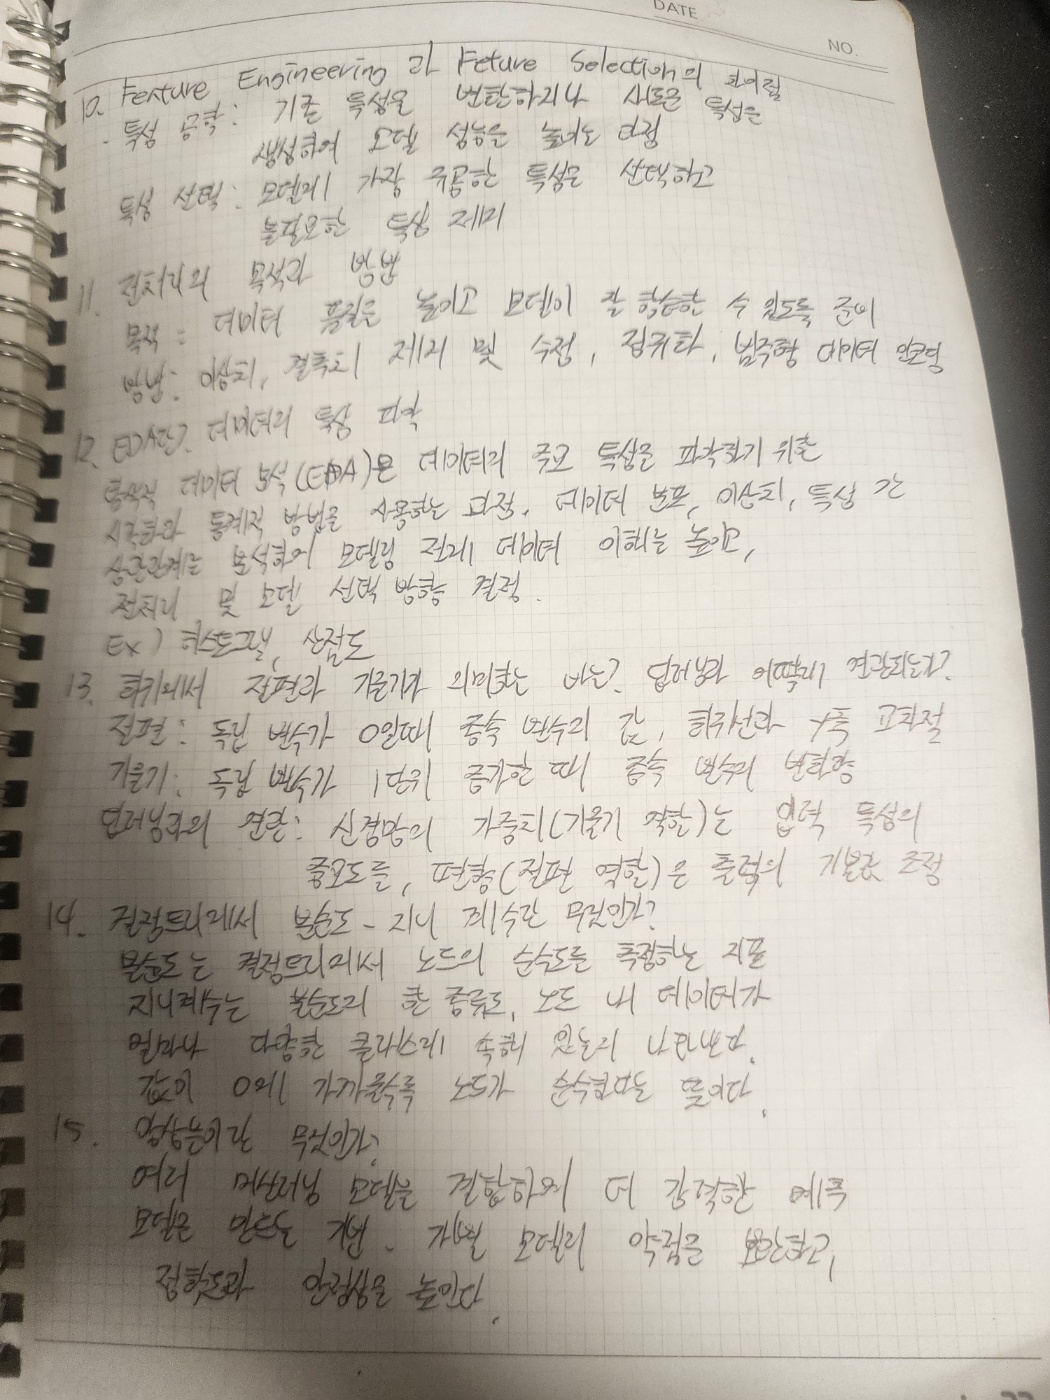 DATE
NO.
10. Feature Engineering 과 Feture Selection의 차이점
- 특성 공학: 기존 특성을 변환하거나 새로운 특성을
생성하여 모델 성능을 높이는 과정
특성 선택: 모델에 가장 유용한 특성을 선택하고
불필요한 특성 제거
11. 전처리의 목적과 방법
목적: 데이터 품질을 높이고 모델이 잘 학습할 수 있도록 준비
방법: 이상치, 결측치 제거 및 수정, 정규화, 범주형 데이터 인코딩
12. EDA란? 데이터의 특성 파악
탐색적 데이터 분석(EDA)은 데이터의 주요 특성을 파악하기 위한
시각화와 통계적 방법을 사용하는 과정. 데이터 분포, 이상치, 특성 간
상관관계를 분석하여 모델링 전에 데이터 이해를 높이고,
전처리 및 모델 선택 방향을 결정.
Ex) 히스토그램, 산점도
13. 회귀에서 절편과 기울기가 의미하는 바는? 딥러닝과 어떻게 연관되는가?
절편: 독립 변수가 0일때 종속 변수의 값, 회귀선과 Y축 교차점
기울기: 독립 변수가 1단위 증가할 때 종속 변수의 변화량
딥러닝과의 연관: 신경망의 가중치(기울기 역할)는 입력 특성의
중요도를, 편향(절편 역할)은 출력의 기본값 조정
14. 결정트리에서 불순도 - 지니 계수란 무엇인가?
불순도는 결정트리에서 노드의 순수도를 측정하는 지표
지니계수는 불순도의 한 종류로, 노드 내 데이터가
얼마나 다양한 클래스에 속해 있는지 나타낸다.
값이 0에 가까울수록 노드가 순수하다는 뜻이다.
15. 앙상블이란 무엇인가?
여러 머신러닝 모델을 결합하여 더 강력한 예측
모델을 만드는 기법. 개별 모델의 약점을 보완하고,
정확도와 안정성을 높인다.